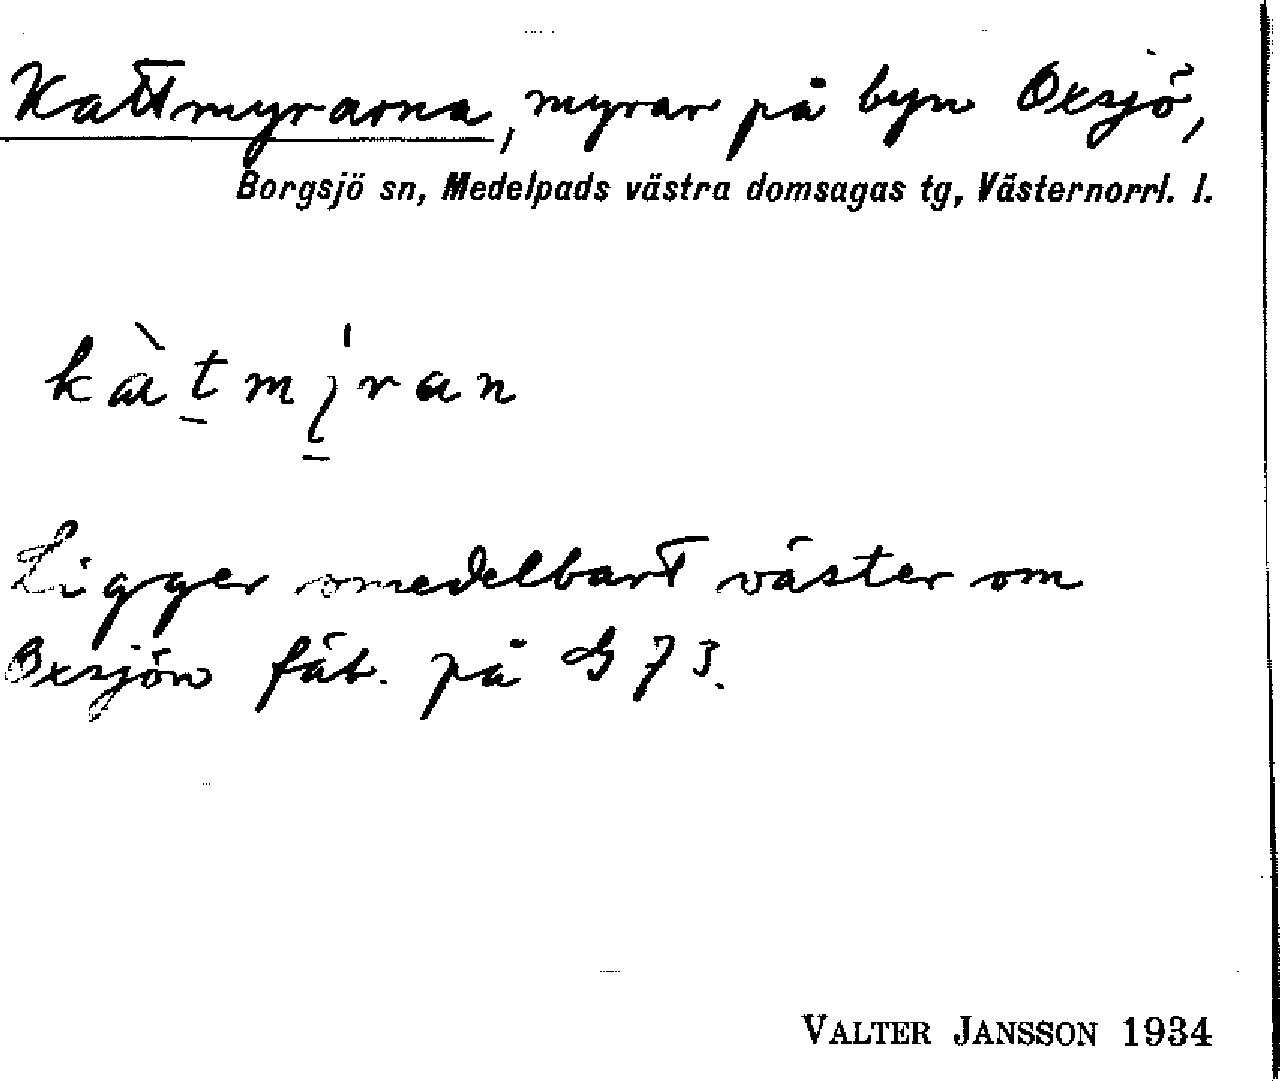 Kattmyrarna, myrar på byn Oxsjö,
Borgsjö sn, Medelpads västra domsagas tg, Västernorrl. l.
kàt̠mý̠ran
Ligger omedelbart väster om
Oxsjön fäb. på G 73.
VALTER JANSSON 1934